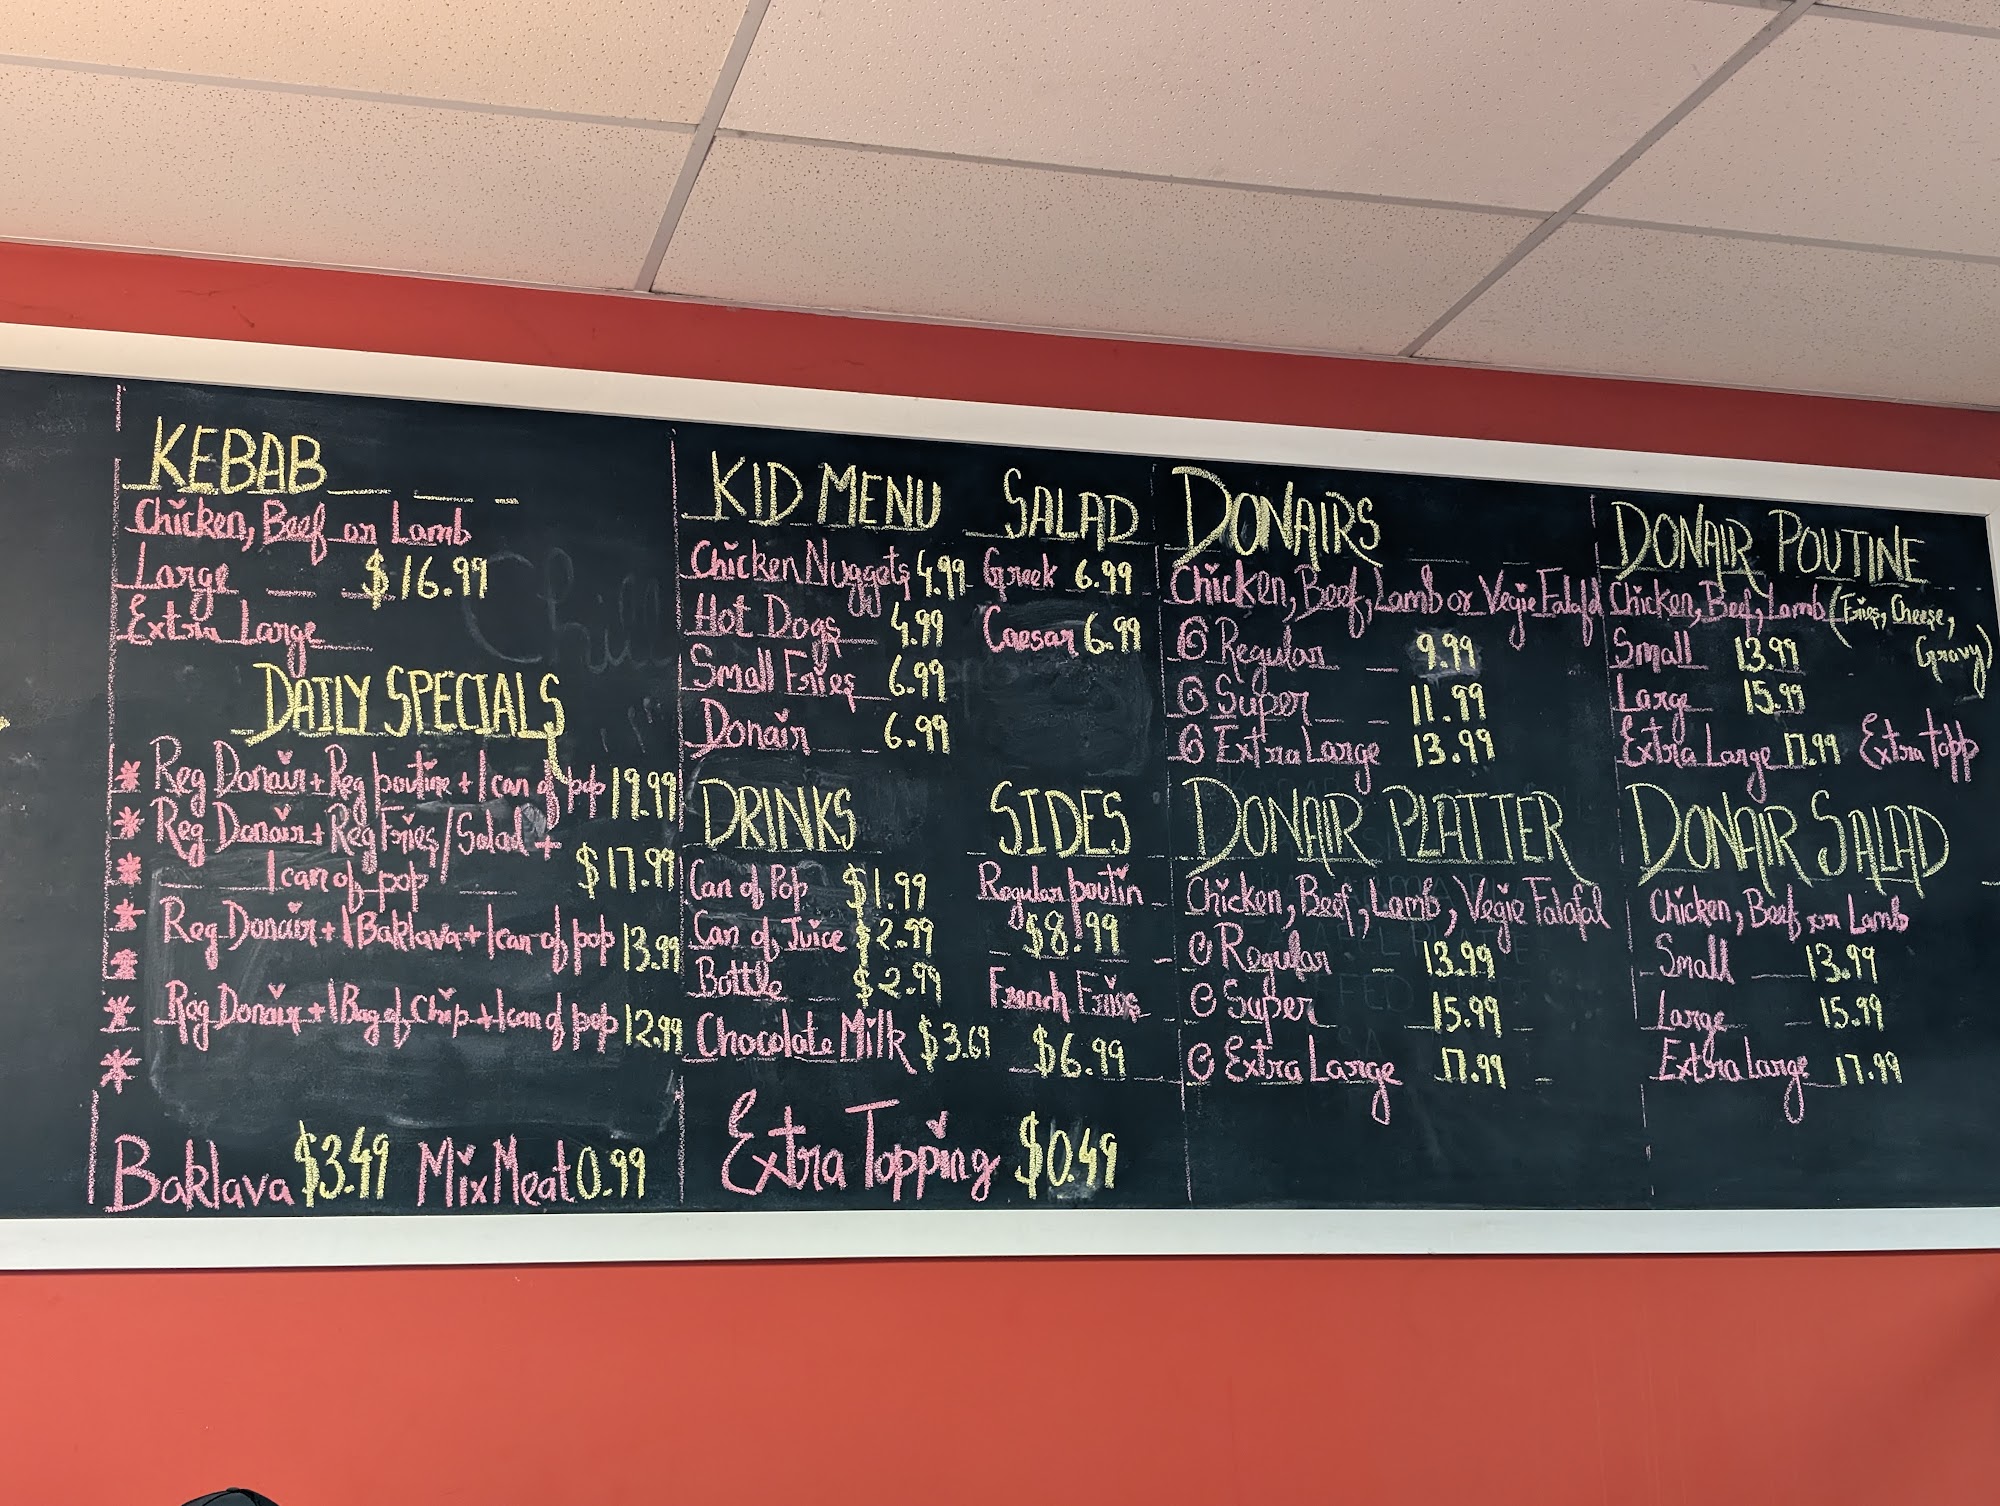 KEBAB
Chicken, Beef or Lamb
Large $16.99
Extra Large
DAILY SPECIALS
* Reg Donair + Reg poutine + 1 can of pop 19.99
* Reg Donair + Reg Fries / Salad +
* 1 can of pop $17.99
* Reg Donair + 1 Baklava + 1 can of pop 13.99
*
* Reg Donair + 1 Bag of Chip + 1 can of pop 12.99
*
Baklava $3.49 Mix Meat 0.99
KID MENU
Chicken Nuggets 4.99
Hot Dogs 4.99
Small Fries 6.99
Donair 6.99
SALAD
Greek 6.99
Caesar 6.99
DRINKS
Can of Pop $1.99
Can of Juice $2.99
Bottle $2.99
Chocolate Milk $3.69
SIDES
Regular poutin
$8.99
French Fries
$6.99
Extra Topping $0.49
DONAIRS
Chicken, Beef, Lamb or Vegie Falafel
Regular 9.99
Super 11.99
Extra Large 13.99
DONAIR PLATTER
Chicken, Beef, Lamb, Vegie Falafal
Regular 13.99
Super 15.99
Extra Large 17.99
DONAIR POUTINE
Chicken, Beef, Lamb (Fries, Cheese,
Gravy)
Small 13.99
Large 15.99
Extra Large 17.99 Extra topp
DONAIR SALAD
Chicken, Beef or Lamb
Small 13.99
Large 15.99
Extra Large 17.99